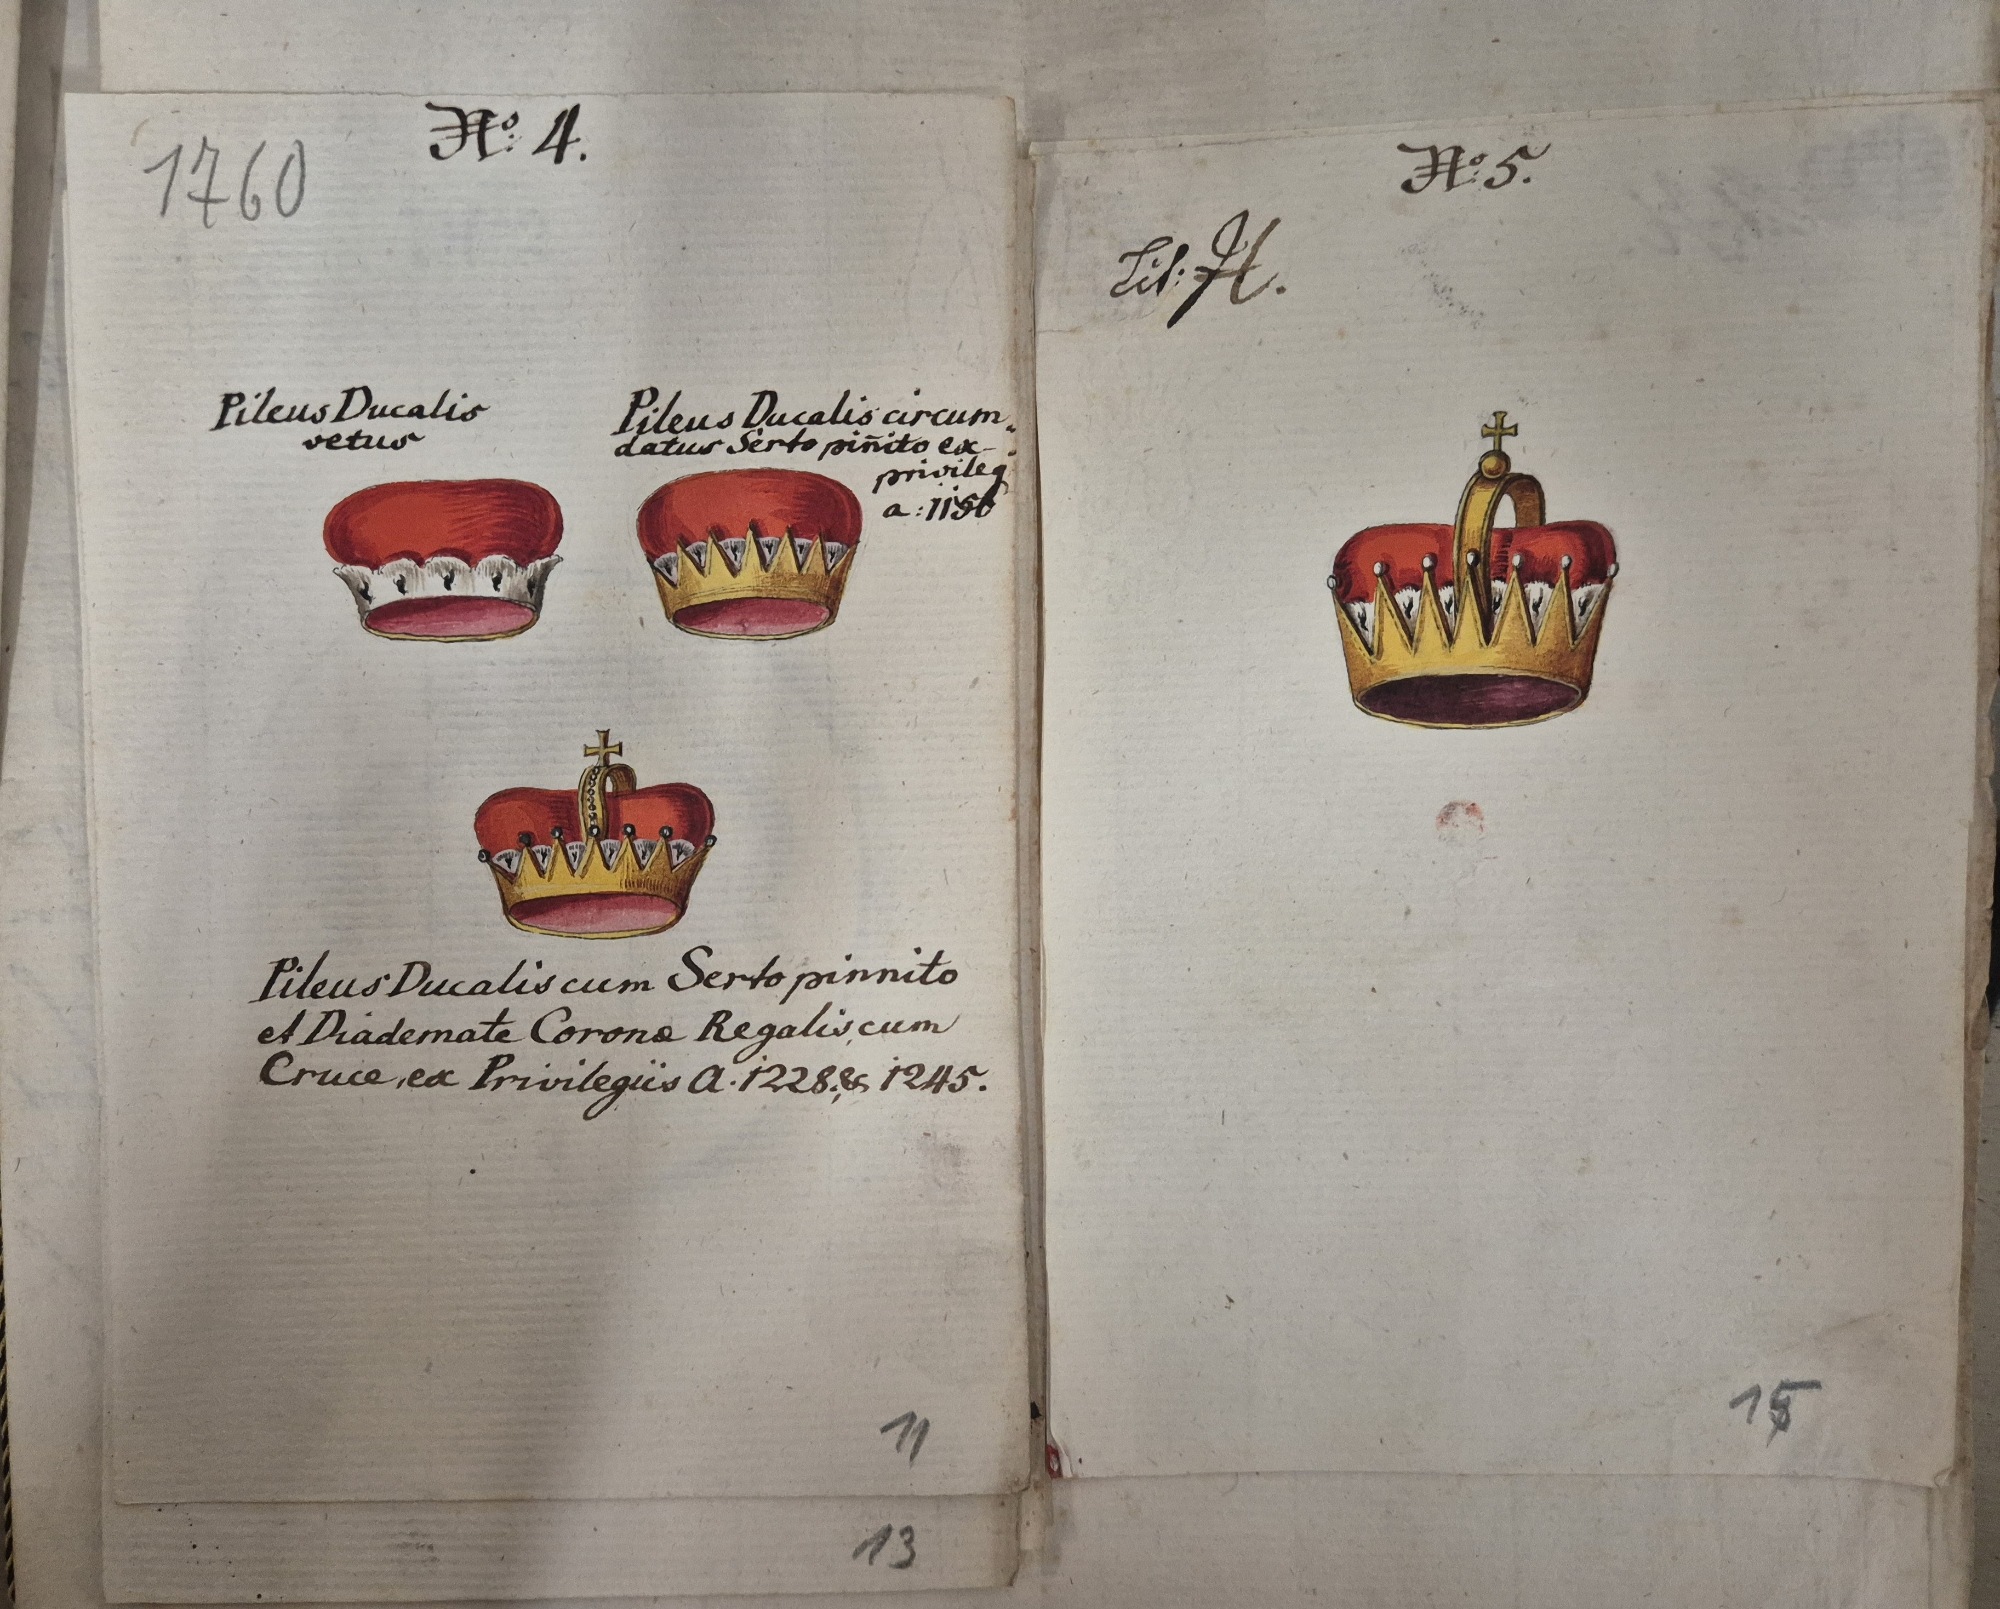 1760
No: 4.
Pileus Ducalis
vetus
Pileus Ducalis circum„
datus Serto piñito ex-
privileg
a: 1156
Pileus Ducalis cum Serto pinnito
et Diademate Coronæ Regalis, cum
Cruce, ex Privilegiis A. 1228. & 1245.
11
13
No: 5.
Lit: H.
15